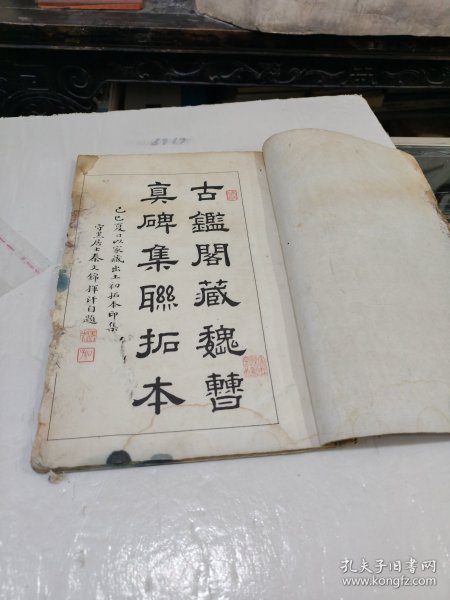 古鑑閣藏魏曹
真碑集聯拓本
己巳夏日以家藏出土初拓本印集
守黑居士秦文錦揮汗自題
孔夫子旧书网
www.kongfz.com